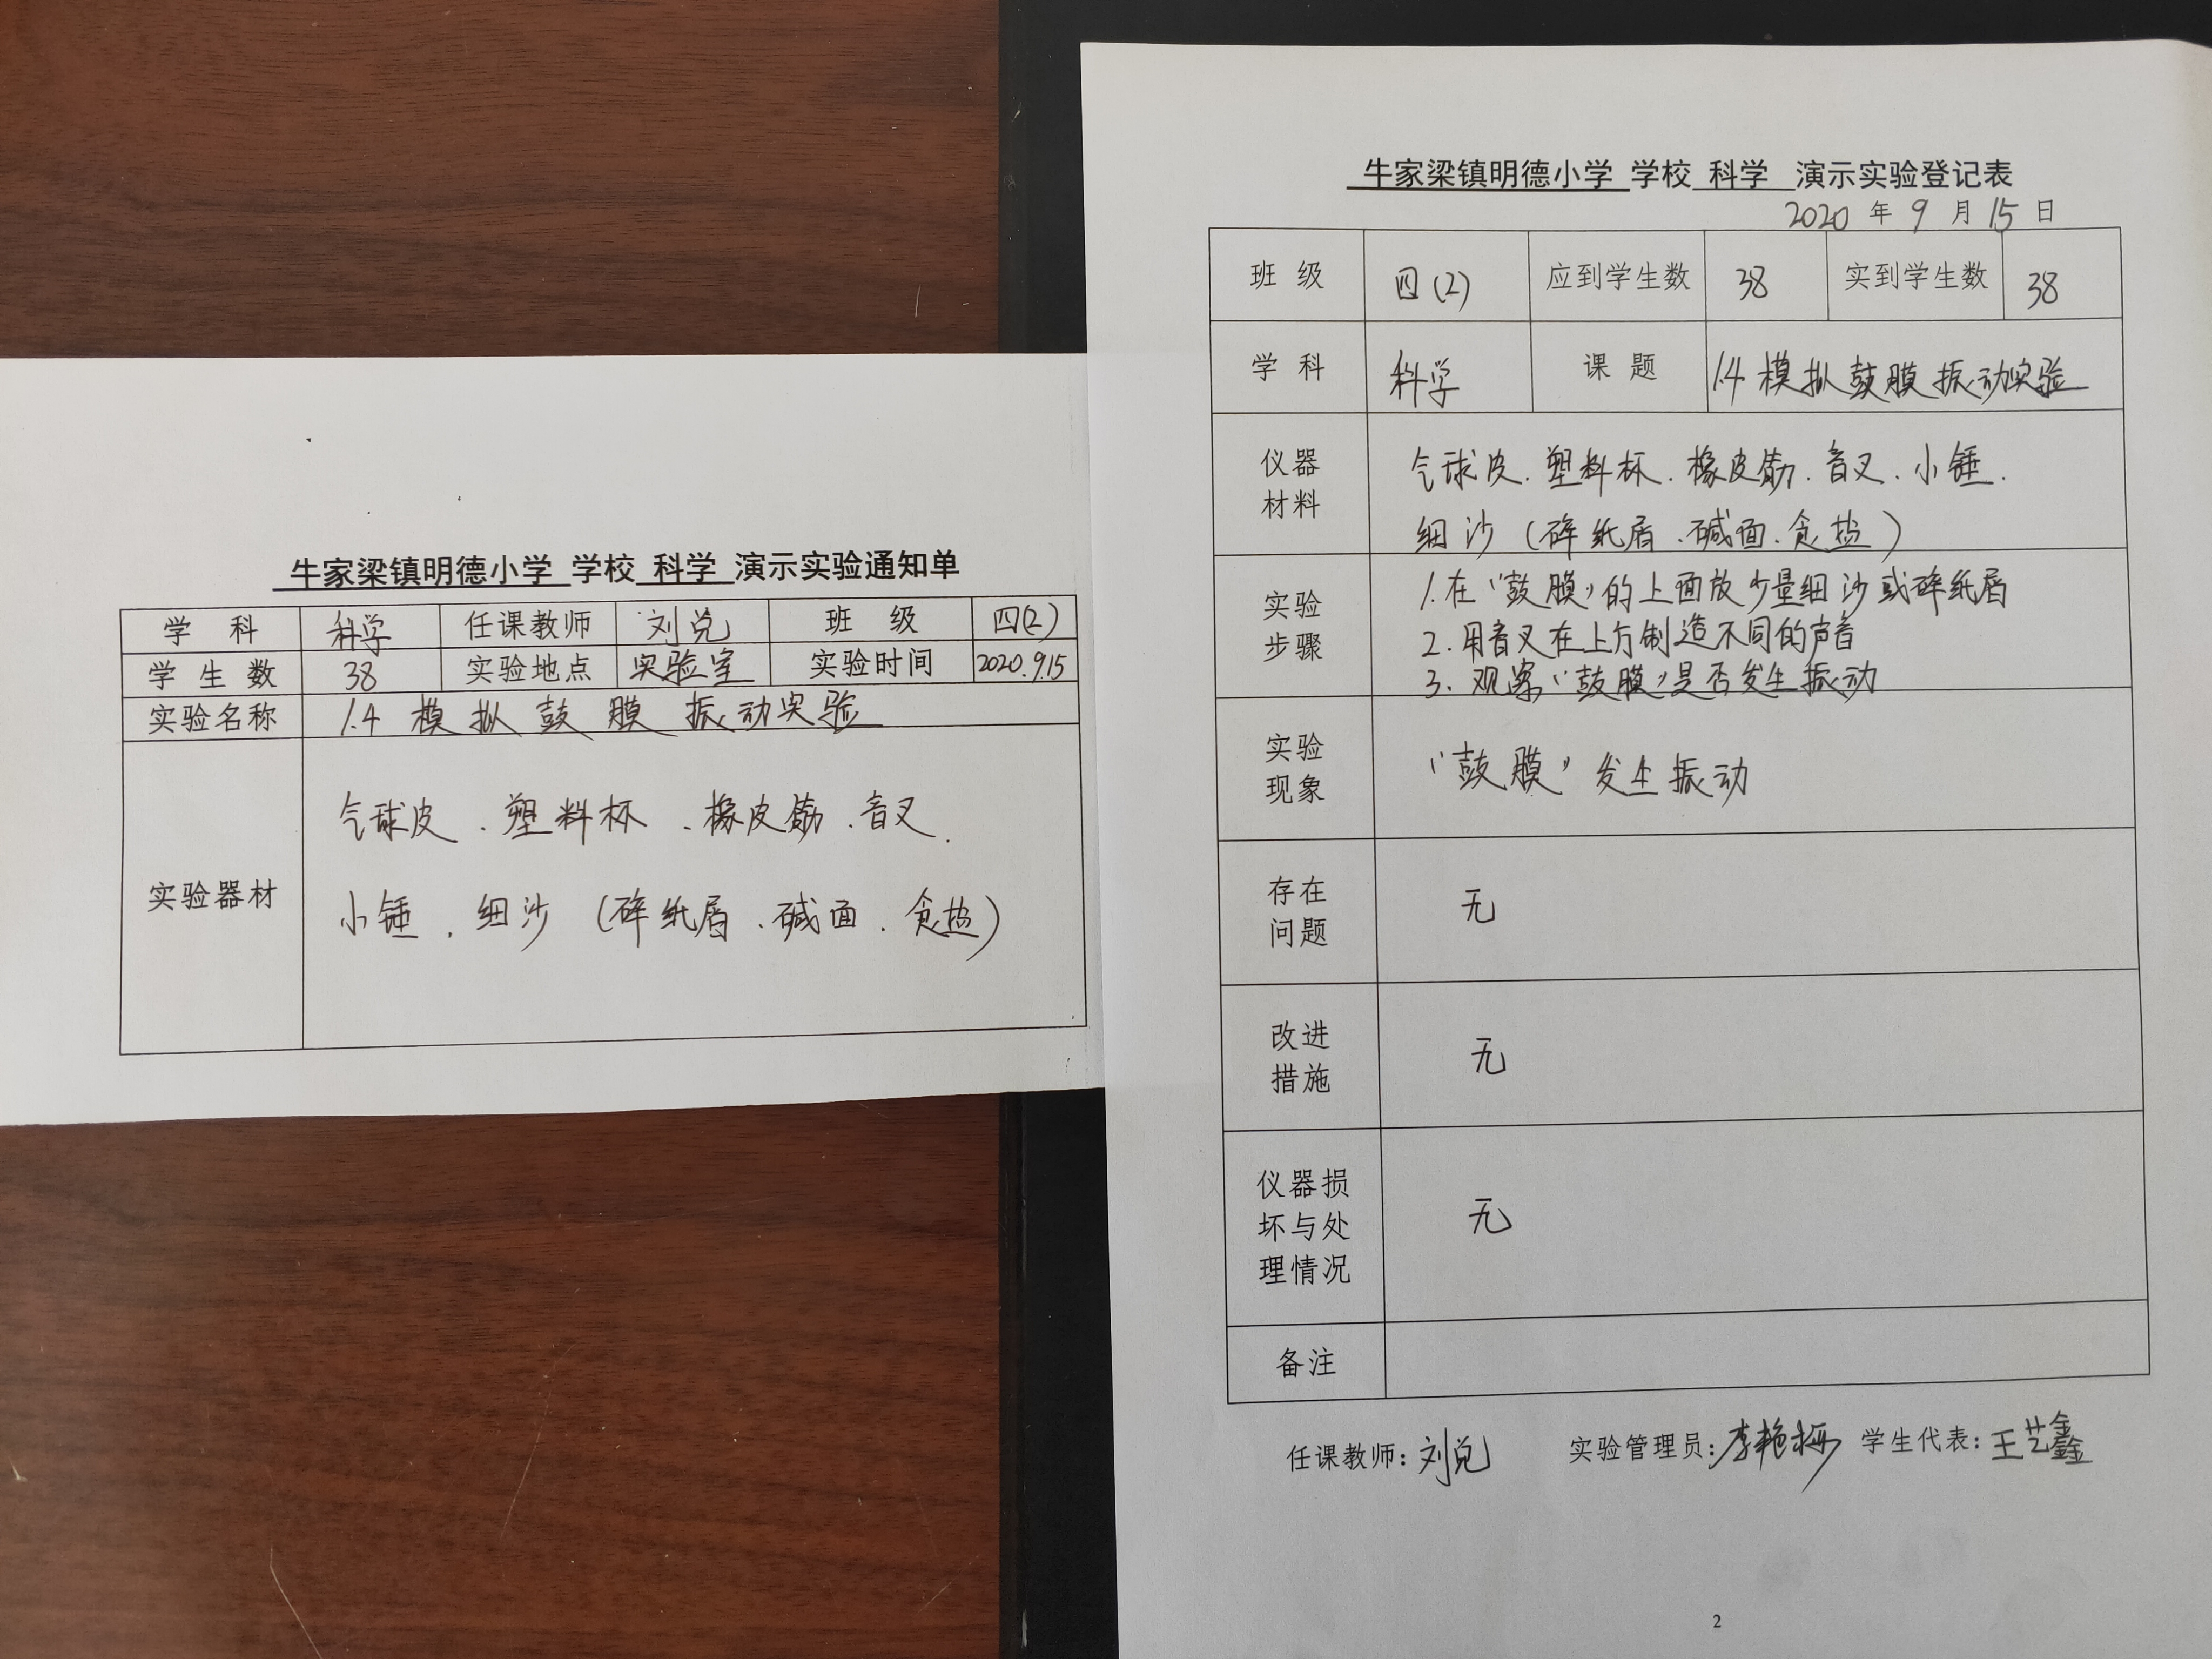 牛家梁镇明德小学 学校 科学 演示实验通知单
学 科 科学 任课教师 刘兑 班 级 四(2)
学 生 数 38 实验地点 实验室 实验时间 2020.9.15
实验名称 1.4 模拟鼓膜振动实验
实验器材
气球皮、塑料杯、橡皮筋、音叉、
小锤、细沙(碎纸屑、碱面、食盐)
牛家梁镇明德小学 学校 科学 演示实验登记表
2020 年 9 月 15 日
班 级 四(2) 应到学生数 38 实到学生数 38
学 科 科学 课 题 1.4 模拟鼓膜振动实验
仪器
材料
气球皮、塑料杯、橡皮筋、音叉、小锤、
细沙(碎纸屑、碱面、食盐)
实验
步骤
1.在“鼓膜”的上面放少量细沙或碎纸屑
2.用音叉在上方制造不同的声音
3.观察“鼓膜”是否发生振动
实验
现象
“鼓膜”发生振动
存在
问题
无
改进
措施
无
仪器损
坏与处
理情况
无
备注
任课教师:刘兑 实验管理员:李艳 学生代表:王艺鑫
2